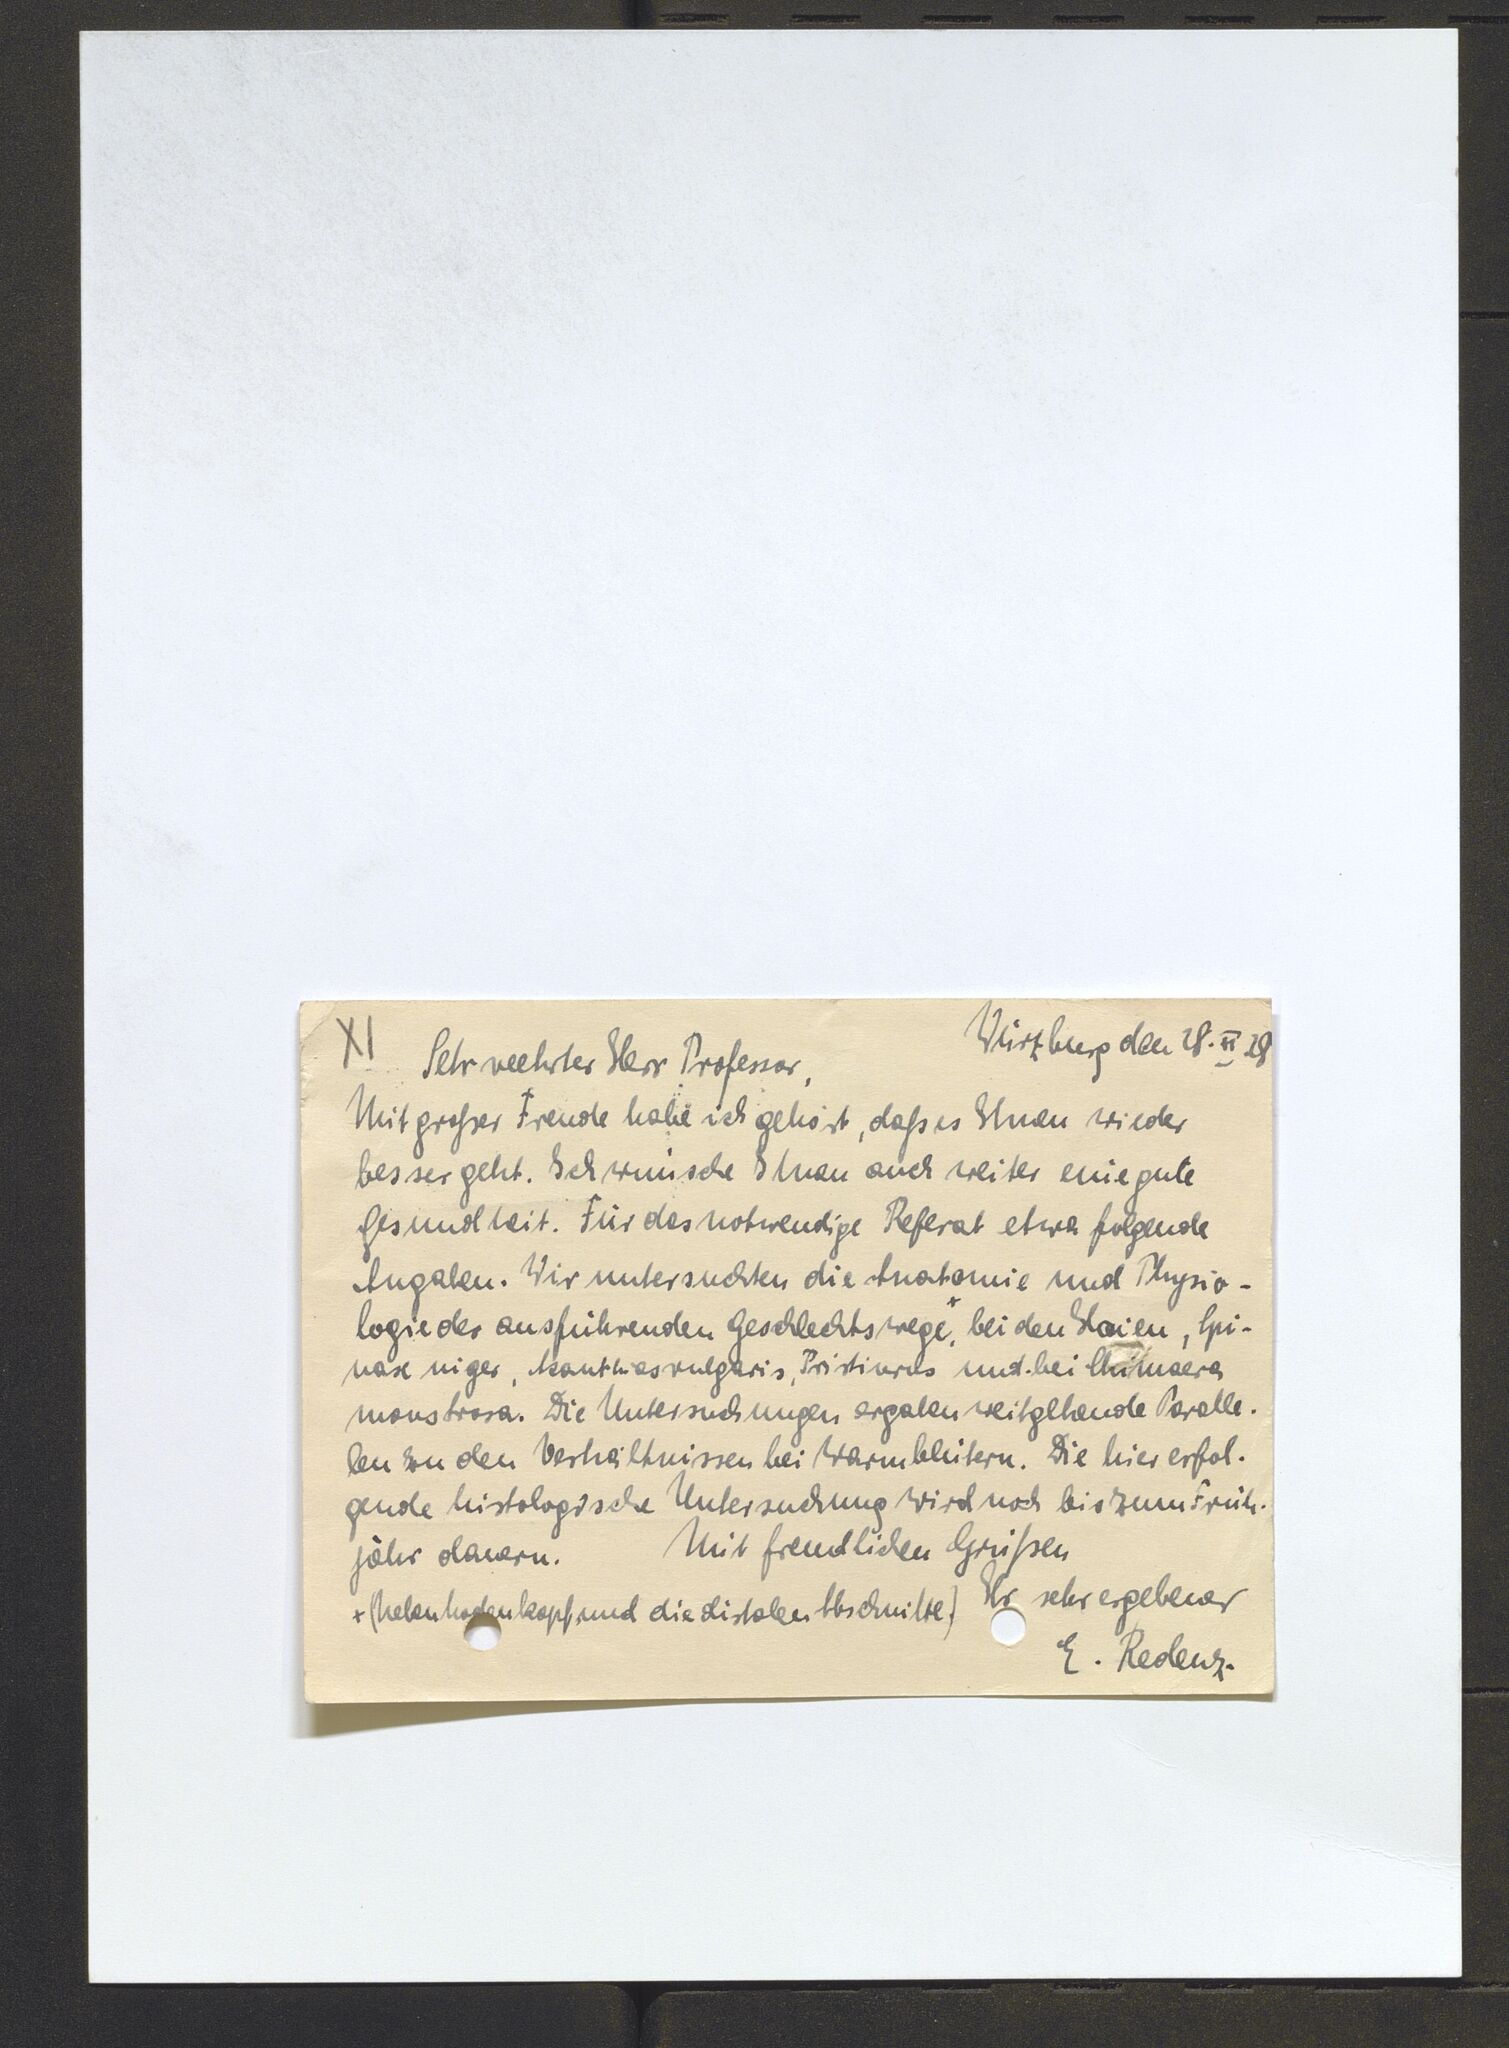 XI
Würzburg den 28. XI 28
Sehr veehrter Herr Professor,
Mit großer Freude habe ich gehört, daß es Ihnen wieder
besser geht. Ich wünsche Ihnen auch weiter eine gute
Gesundheit. Für das notwendige Referat etwa folgende
Angaben. Wir untersuchten die Anatomie und Physio-
logie der ausführenden Geschlechtswege+, bei den Haien, Spi-
nax niger, Acanthias vulgaris, Pristiurus und bei Chimaera
monstrosa. Die Untersuchungen ergaben weitgehende Paralle-
len zu den Verhältnissen bei Warmblütern. Die hier erfol-
gende histologische Untersuchung wird noch bis zum Früh-
jahr dauern. Mit freundlichen Grüßen
+(Nebenhodenkopf und die distalen Abschnitte) Ihr sehr ergebener
E. Redenz.